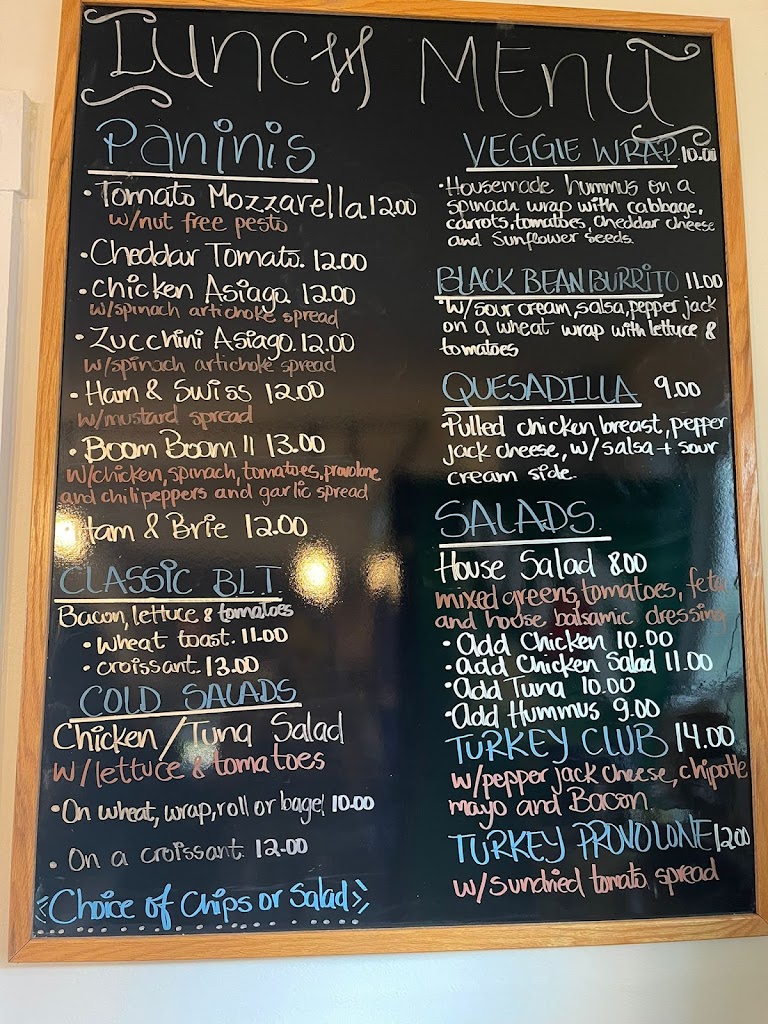 LUNCH MENU
PANINIS
• Tomato Mozzarella 12.00
w/nut free pesto
• Cheddar Tomato. 12.00
• Chicken Asiago 12.00
w/spinach artichoke spread
• Zucchini Asiago. 12.00
w/spinach artichoke spread
• Ham & Swiss 12.00
w/mustard spread
• Boom Boom!! 13.00
w/chicken, spinach, tomatoes, provolone
and chili peppers and garlic spread
• Ham & Brie 12.00
CLASSIC BLT
Bacon, lettuce & tomatoes
• wheat toast. 11.00
• croissant. 13.00
COLD SALADS
Chicken/Tuna Salad
w/lettuce & tomatoes
• On wheat, wrap, roll or bagel 10.00
• On a croissant. 12.00
Choice of Chips or Salad
VEGGIE WRAP. 10.00
• Housemade hummus on a
spinach wrap with cabbage,
carrots, tomatoes, cheddar cheese
and Sunflower Seeds.
BLACK BEAN BURRITO 11.00
w/sour cream, salsa, pepper jack
on a wheat wrap with lettuce &
tomatoes
QUESADILLA 9.00
Pulled chicken breast, pepper
jack cheese, w/ salsa + sour
cream side.
SALADS.
House Salad 8.00
mixed greens, tomatoes, feta
and house balsamic dressing
• Add Chicken 10.00
• add Chicken Salad 11.00
• Add Tuna 10.00
• Add Hummus 9.00
TURKEY CLUB 14.00
w/pepper jack cheese, chipotle
mayo and Bacon
TURKEY PROVOLONE 12.00
w/sundried tomato spread